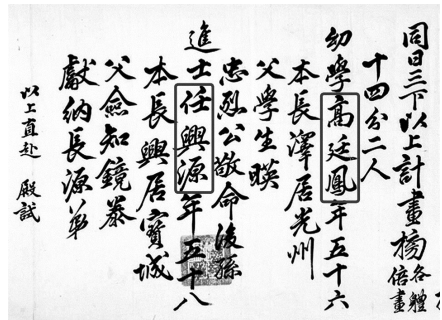 同日三下以上計畫榜各體倍畫
十四分二人
幼學高廷鳳年五十六
本長澤居光州
父學生暎
忠烈公敬命後孫
進士任興源年五十八
本長興居寶城
父僉知鏡參
獻納長源弟
以上直赴 殿試